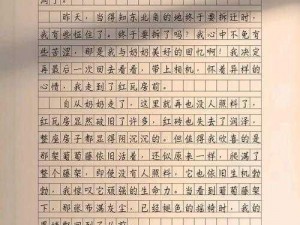 闹了。
昨天，当得知东北角的她终于要拆迁时，
我有些怔住了。终于要拆了吗？我心中不免有
些苦涩，那是我与奶奶美好的回忆啊！我决定
再最后一次回去看看，带上相机，怀着异样的
心情，我走到了红瓦房前。
自从奶奶走了，这里就再也没人照料了。
红瓦房显然破旧了许多，红砖也失去了润泽，
整座房子都显得阴沉沉的。但值得我欣喜的是
那架葡萄藤依旧活着，还像原来一样，爬满了
整个藤架，即使没有人照料，它也依旧生机勃
勃，我惊叹它顽强的生命力。当看到葡萄藤架
下，那张布满灰尘，已经褪色的摇椅时，我的
思绪飘回到了从前